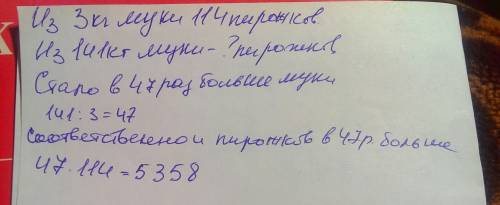 Из 3кг муки 114 пирожков
Из 141кг муки - ? пирожков
Стало в 47 раз больше муки
141 : 3 = 47
Соответственно и пирожков в 47 р. больше
47 · 114 = 5358